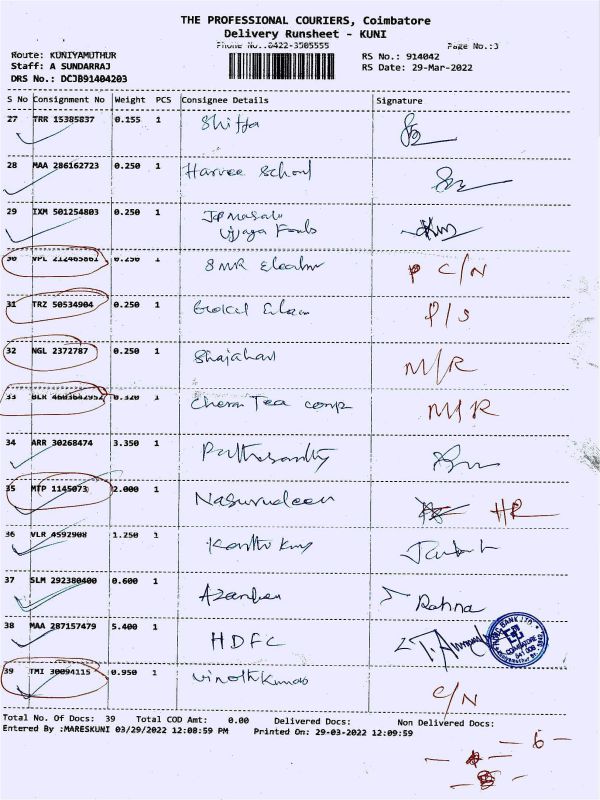 THE PROFESSIONAL COURIERS, Coimbatore
Delivery Runsheet - KUNI
Phone No.:0422-3505555 Page No.:3
Route: KUNIYAMUTHUR RS No.: 914042
Staff: A SUNDARRAJ RS Date: 29-Mar-2022
DRS No.: DCJB91404203
S No Consignment No Weight PCS Consignee Details Signature
27 TRR 15385837 0.155 1
28 MAA 286162723 0.250 1 Harvee School
29 IXM 501254803 0.250 1 Masala
30 VPL 212465861 0.250 1 SMR P C/N
31 TRZ 50534904 0.250 1 P/S
32 NGL 2372787 0.250 1 Shajahan M/R
33 BLR 4603642952 0.320 1 Cheran Tea comp M/R
34 ARR 30268474 3.350 1
35 MTP 1145073 2.000 1 Nasurudeen HR
36 VLR 4592908 1.250 1
37 SLM 292380400 0.600 1 Rahna
38 MAA 287157479 5.400 1 HDFC
39 TMI 30094115 0.950 1 Vinothkumar C/N
Total No. Of Docs: 39 Total COD Amt: 0.00 Delivered Docs: Non Delivered Docs:
Entered By :MARESKUNI 03/29/2022 12:08:59 PM Printed On: 29-03-2022 12:09:59
- 6 -